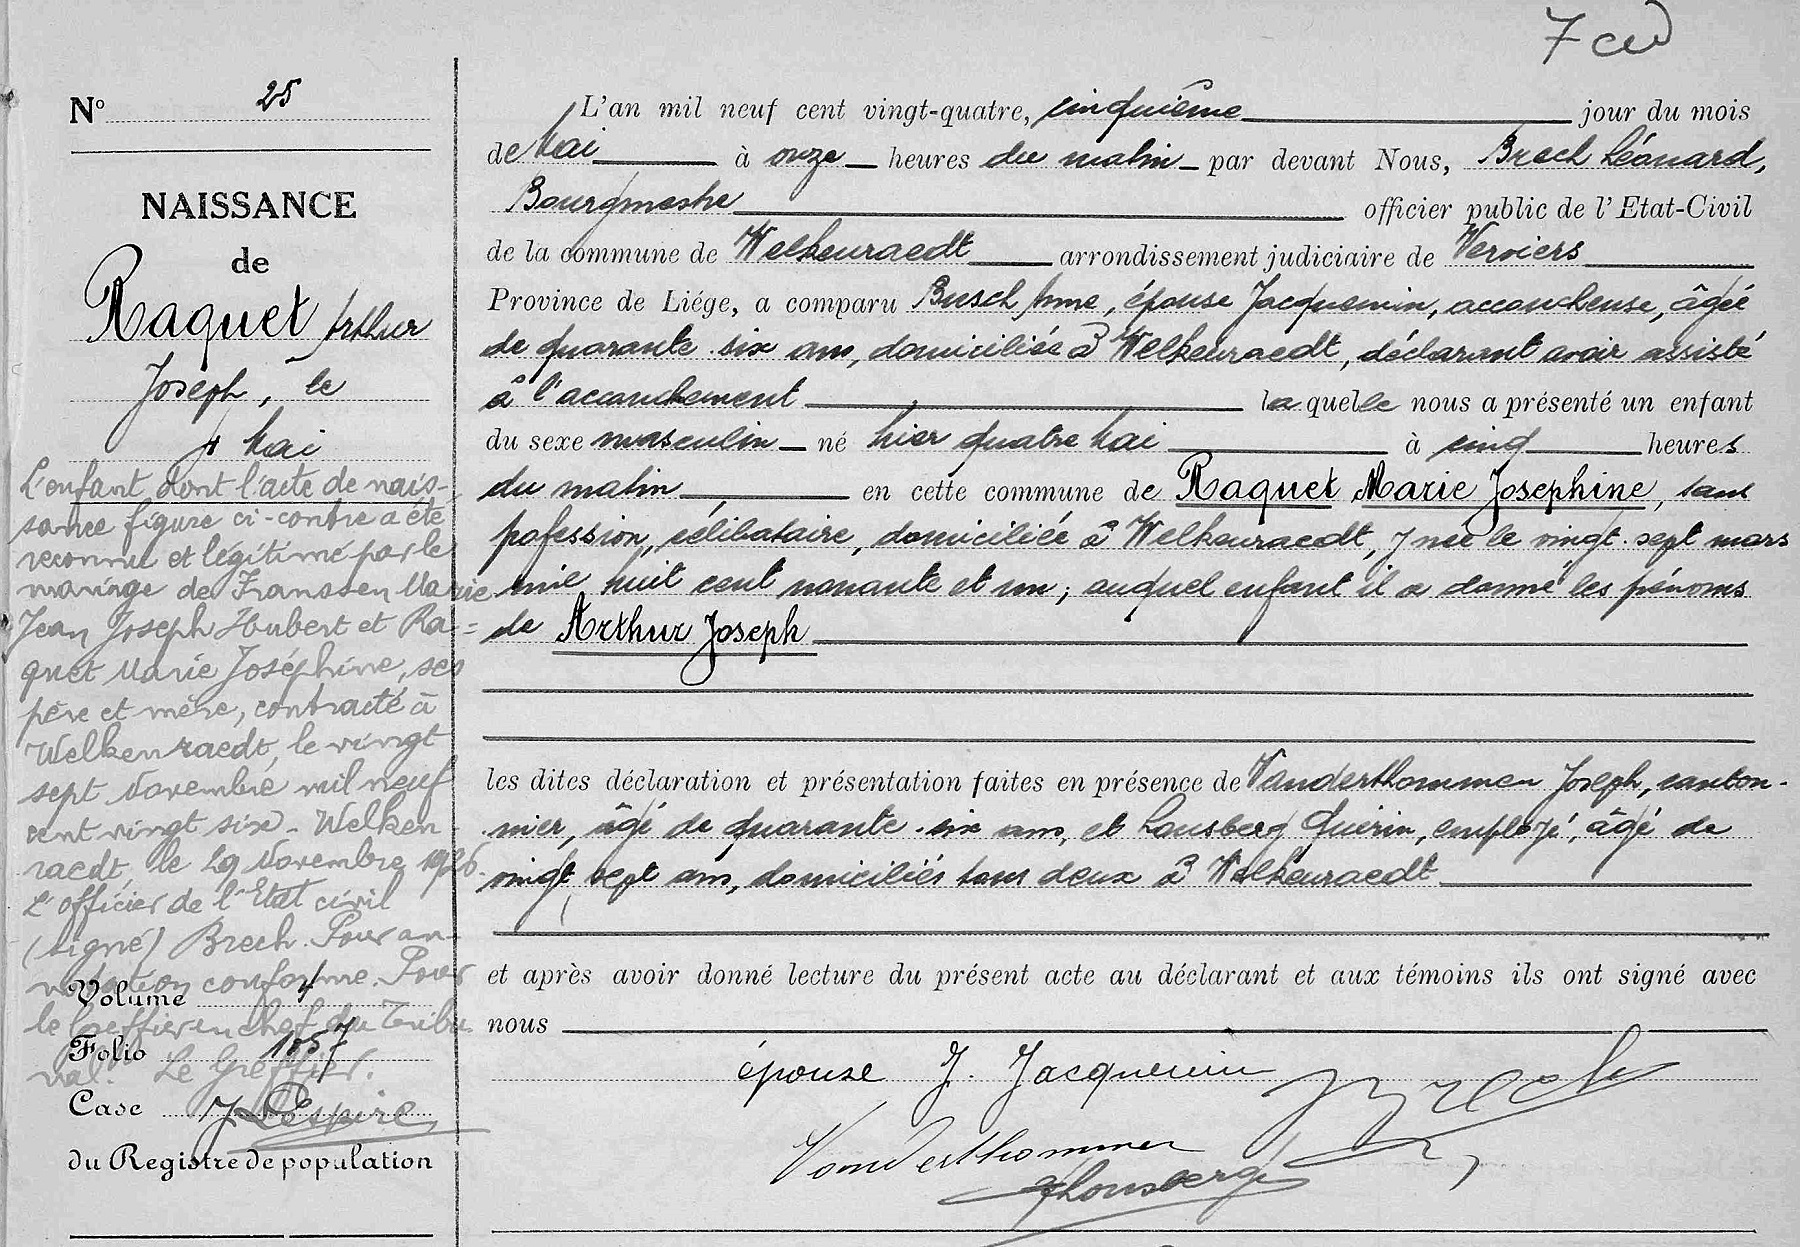 7 ced
N° 25
NAISSANCE
de
Raquet Arthur
Joseph, le
4 Mai
L'enfant dont l'acte de nais-
sance figure ci-contre a été
reconnu et légitimé par le
mariage de Franssen Marie
Jean Joseph Hubert et Ra-
quet Marie Joséphine, ses
père et mère, contracté à
Welkenraedt, le vingt
sept Novembre mil neuf
cent vingt six. Welken-
raedt, le 29 Novembre 1926.
L'officier de l'Etat civil
(signé) Brech. Pour an-
notation conforme. Pour
le Greffier en chef du Tribu-
nal. Le Greffier.
Volume 4
Folio 1057
Case
J Lespire
du Registre de population
L'an mil neuf cent vingt-quatre, cinquième jour du mois
de Mai à onze heures du matin par devant Nous, Brech Léonard,
Bourgmestre officier public de l'Etat-Civil
de la commune de Welkenraedt arrondissement judiciaire de Verviers
Province de Liége, a comparu Busch Anne, épouse Jacquemin, accoucheuse, âgée
de quarante six ans, domiciliée à Welkenraedt, déclarant avoir assisté
à l'accouchement laquelle nous a présenté un enfant
du sexe masculin né hier quatre Mai à cinq heures
du matin en cette commune de Raquet Marie Josephine, sans
pofession, célibataire, domiciliée à Welkenraedt, y née le vingt sept mars
mil huit cent nonante et un; auquel enfant il a donné les pénoms
de Arthur Joseph
les dites déclaration et présentation faites en présence de Vanderthommen Joseph, canton-
nier, âgé de quarante six ans, et Lousberg Guérin, employé, âgé de
vingt sept ans, domiciliés tous deux à Welkenraedt
et après avoir donné lecture du présent acte au déclarant et aux témoins ils ont signé avec
nous
épouse J. Jacquemin Brech
Vanderthommen
Lousberg